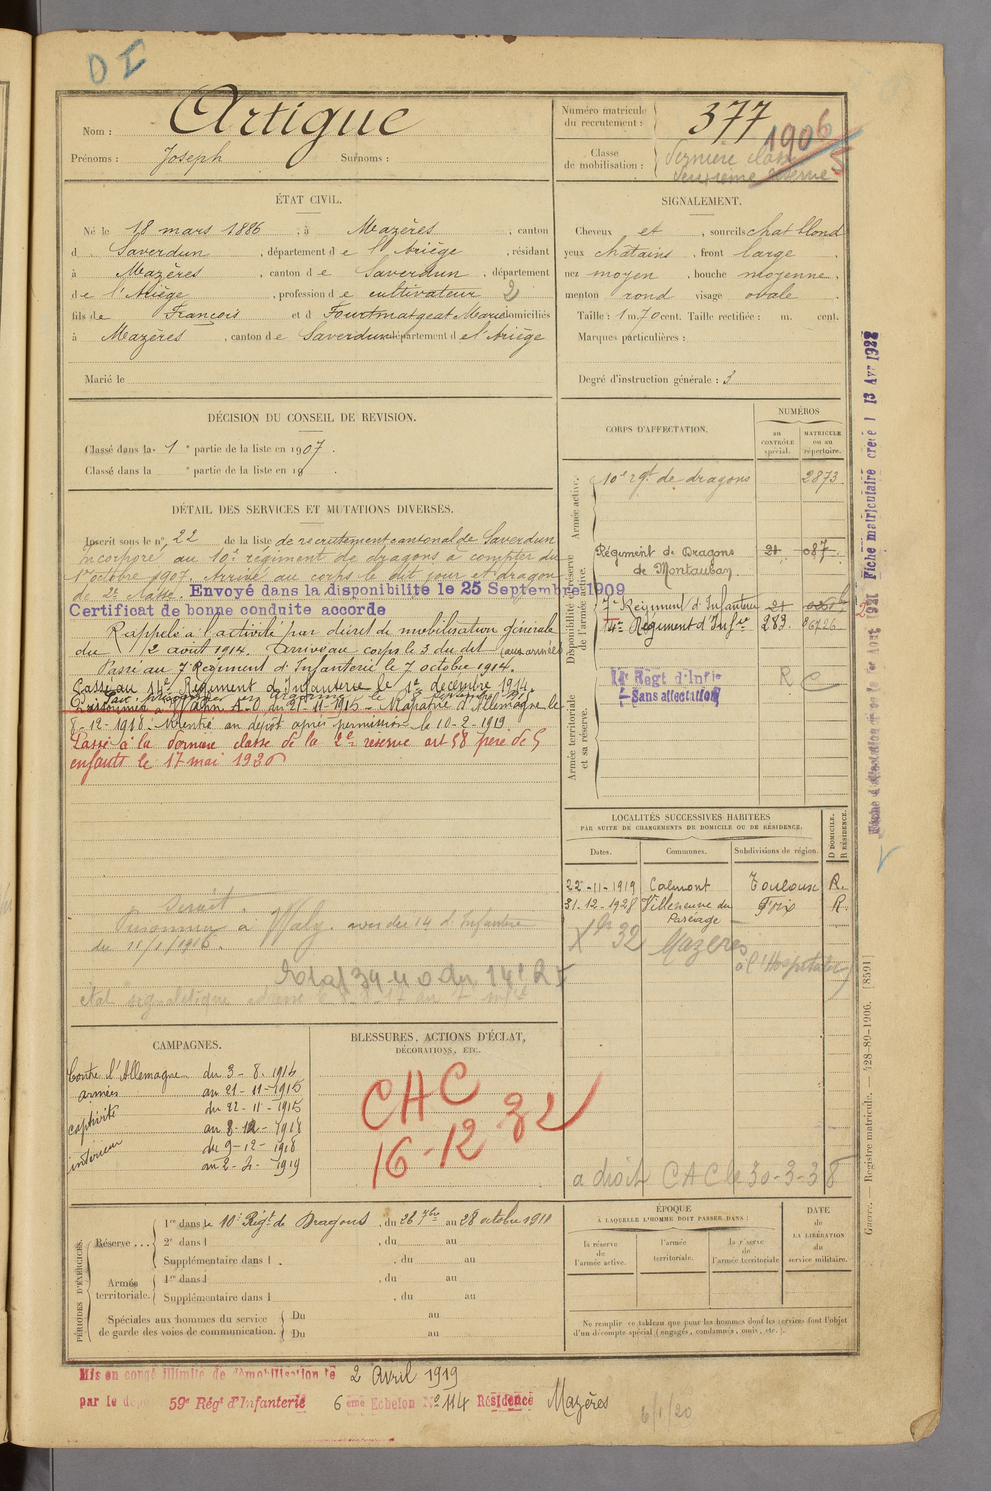 D I
Nom : Artigue
Prénoms : Joseph Surnoms :
Numéro matricule du recrutement : 377
Classe de mobilisation : 1906
Dernière classe
deuxième réserve
ÉTAT CIVIL.
Né le 18 mars 1886, à Mazères, canton
d Saverdun, département de l'Ariège, résidant
à Mazères, canton de Saverdun, département
de l'Ariège, profession de cultivateur 2
fils de François et d Fourtmatgeat Marie domiciliés
à Mazères, canton de Saverdun département de l'Ariège
Marié le
SIGNALEMENT.
Cheveux et , sourcils chat blond
yeux chatains, front large
nez moyen, bouche moyenne,
menton rond visage ovale
Taille : 1 m. 70 cent. Taille rectifiée : m. cent.
Marques particulières :
Degré d'instruction générale : 3
DÉCISION DU CONSEIL DE REVISION.
Classé dans la 1 e partie de la liste en 1907.
Classé dans la e partie de la liste en 19
DÉTAIL DES SERVICES ET MUTATIONS DIVERSES.
Inscrit sous le n° 22 de la liste de recrutement cantonal de Saverdun
Incorporé au 10e régiment de dragons à compter du
1er octobre 1907. Arrivé au corps le dit jour et dragon
de 2e classe. Envoyé dans la disponibilité le 25 Septembre 1909
Certificat de bonne conduite accordé
Rappelé à l'activité par décret de mobilisation générale
du 2 août 1914. Arrivé au corps le 3 du dit (aux armées)
Passé au 7e Régiment d'Infanterie le 7 octobre 1914.
Passé au 14e Régiment d'Infanterie le 1er décembre 1914.
à Wahn A-O du 21-11-1915 - Rapatrié d'Allemagne le
8-12-1918. Identifié au dépôt après permission le 10-2-1919
Passé à la dernière classe de la 2e réserve art 58 père de 5
enfants le 17 mai 1930
Prisonnier à Waly. avis du 14 d'Infanterie
du 11/1/1916.
CORPS D'AFFECTATION.
NUMÉROS
au CONTRÔLE spécial.
MATRICULE ou au répertoire.
Armée active.
10e rgt de dragons 2873
Disponibilité et réserve de l'armée active.
Régiment de Dragons 21 087
de Montauban
7e Régiment d'Infanterie 21
14e Régiment d'Infie 283
Armée territoriale et sa réserve.
14e Régt d'Infie R C
Sans affectation
Fiche matriculaire créée l 13 Avr 1922
LOCALITÉS SUCCESSIVES HABITÉES
PAR SUITE DE CHANGEMENTS DE DOMICILE OU DE RÉSIDENCE.
Dates. Communes. Subdivisions de région. D DOMICILE. R RÉSIDENCE.
22-11-1919 Calmont Toulouse R.
31-12-1928 Villeneuve du Paréage Foix R.
Xbre 32 Mazères à l'Hospitalet
a droit CAC le 30-3-38
CAMPAGNES.
Contre l'Allemagne du 3-8-1914
armées au 21-11-1915
captivité du 22-11-1915
au 8-12-1918
intérieur du 9-12-1918
au 2-4-1919
BLESSURES, ACTIONS D'ÉCLAT,
DÉCORATIONS, ETC.
CAC
16-12 32
PÉRIODES D'EXERCICES.
Réserve ... 1re dans le 10e Régt de Dragons, du 26 7bre au 28 octobre 1910
2e dans l , du au
Supplémentaire dans l , du au
Armée territoriale. 1re dans l , du au
Supplémentaire dans l , du au
Spéciales aux hommes du service de garde des voies de communication. Du au
Du au
ÉPOQUE
À LAQUELLE L'HOMME DOIT PASSER DANS :
la réserve de l'armée active.
l'armée territoriale.
la réserve de l'armée territoriale
DATE de LA LIBÉRATION du service militaire.
Ne remplir ce tableau que pour les hommes dont les services font l'objet
d'un décompte spécial (engagés, condamnés, omis, etc.).
Guerre. — Registre matricule. — 428-89-1906. [8591]
Mis en congé illimité de démobilisation le 2 Avril 1919
par le dépôt 59e Régt d'Infanterie 6 ème Echelon N° 114 Résidence Mazères
6/1/20